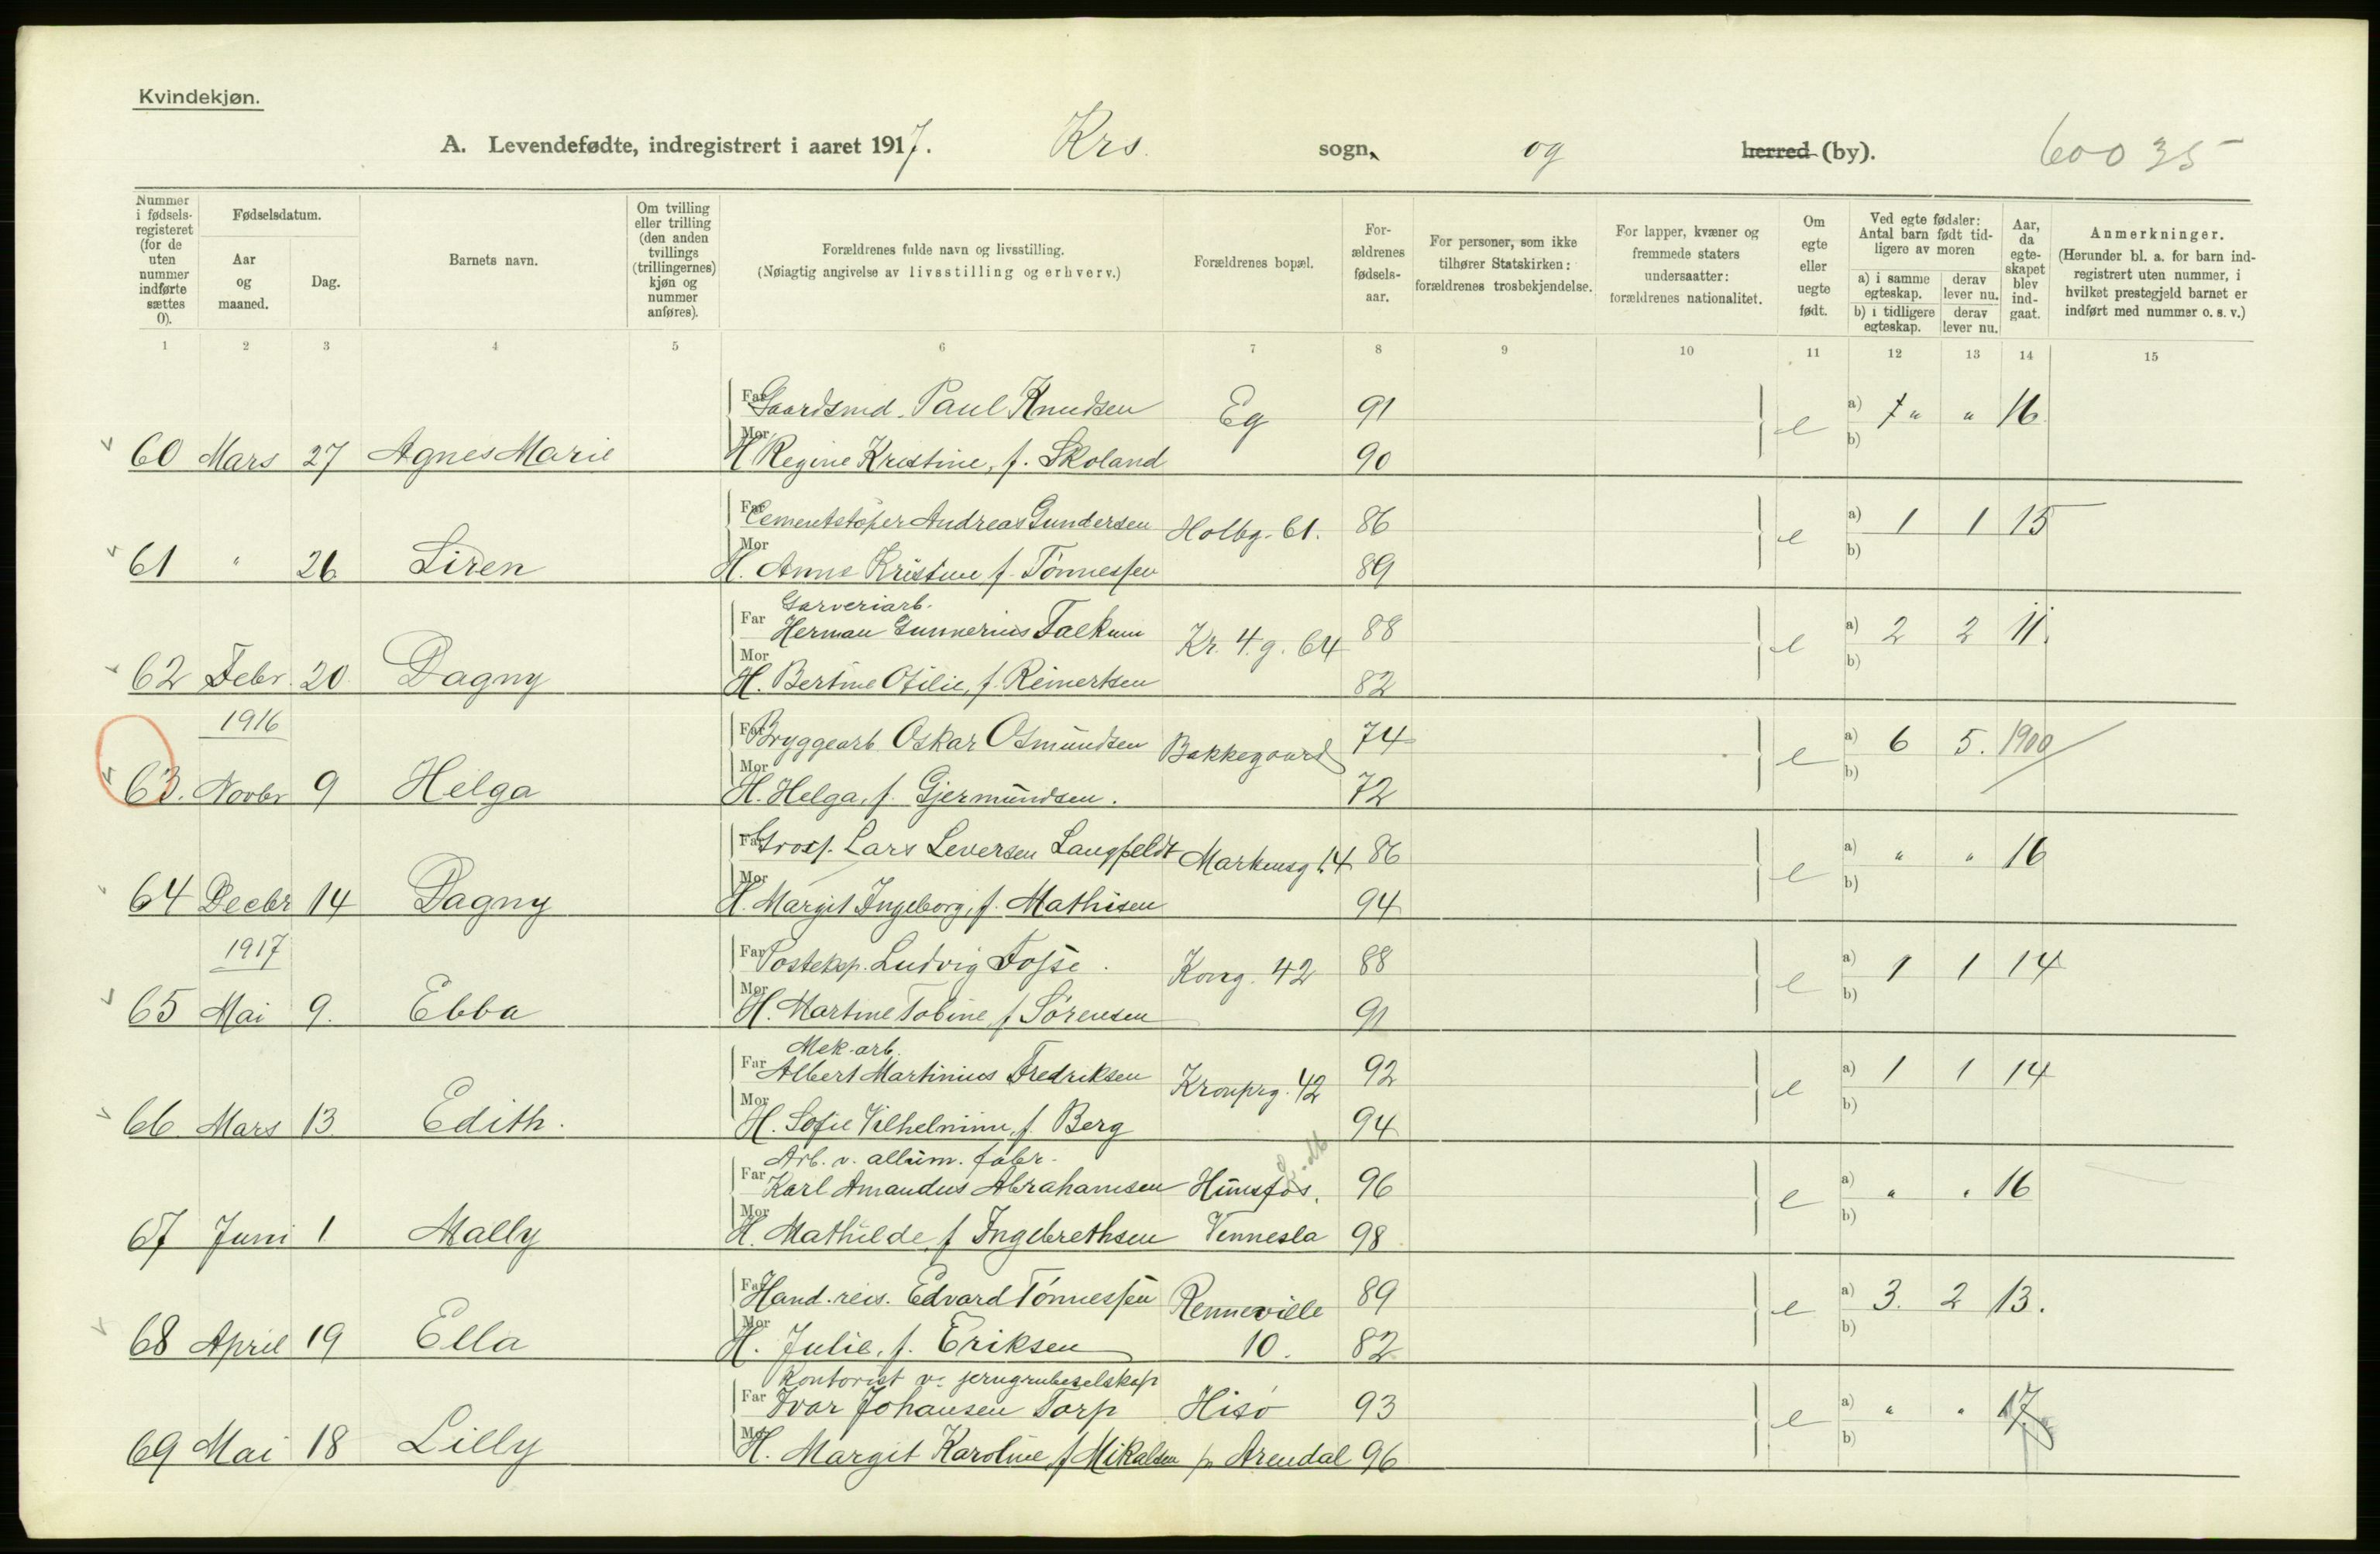 Kvindekjøn.
A. Levendefødte, indregistrert i aaret 1917. Krs. sogn, og herred (by). 60035
Nummer i fødsels-registeret (for de uten nummer indførte sættes 0).
Fødselsdatum.
Aar og maaned.
Dag.
Barnets navn.
Om tvilling eller trilling (den anden tvillings (trillingernes) kjøn og nummer anføres).
Forældrenes fulde navn og livsstilling.
(Nøiagtig angivelse av livsstilling og erhverv.)
Forældrenes bopæl.
For-ældrenes fødsels-aar.
For personer, som ikke tilhører Statskirken: forældrenes trosbekjendelse.
For lapper, kvæner og fremmede staters undersaatter: forældrenes nationalitet.
Om egte eller uegte født.
Ved egte fødsler: Antal barn født tid-ligere av moren
a) i samme egteskap. derav lever nu.
b) i tidligere egteskap. derav lever nu.
Aar, da egte-skapet blev ind-gaat.
Anmerkninger.
(Herunder bl. a. for barn ind-registrert uten nummer, i hvilket prestegjeld barnet er indført med nummer o. s. v.)
1 2 3 4 5 6 7 8 9 10 11 12 13 14 15
Far Gaardsmd. Paul Knudsen Eg 91 e a) " " 16
60 Mars 27 Agnes Marie Mor H Regine Kristine, f. Skoland 90 b)
Far Cementstøper Andreas Gundersen Holbg. 61. 86 e a) 1 1 15
61 " 26 Siren Mor H. Anne Kristine f. Tönnessen 89 b)
Garveriarb.
Far Herman Gunnerius Falkum Kr. 4. g. 64 88 e a) 2 2 11.
62 Febr. 20 Dagny Mor H. Bertine Otilie, f. Reinertsen 82 b)
1916
Far Bryggearb Oskar Osmundsen Bakkegaard 74 e a) 6 5. 1900
63. Novbr 9 Helga Mor H. Helga, f. Gjermundsen. 72 b)
Far Gross. Lars Leversen Langfeldt Markensg 14 86 e a) " " 16
64 Decbr 14 Dagny Mor H. Margit Ingeborg, f. Mathisen 94 b)
1917
Far Posteksp. Ludvig Fosse. Kong. 42 88 e a) 1 1 14
65 Mai 9. Ebba Mor H. Martine Tobine, f Sörensen 91 b)
Mek. arb.
Far Albert Martinius Fredriksen Kronprg. 42 92 e a) 1 1 14
66. Mars 13. Edith. Mor H. Sofie Vilhelmine, f. Berg 94 b)
Arb. v. allum. fabr.
Far Karl Amandus Abrahamsen Hunsfos, 96 e a) " " 16
67 Juni 1 Mally Mor H. Mathilde, f Ingebrethsen Vennesla 98 b)
Far Hand. reis. Edvard Tönnessen Renneville 89 e a) 3. 2 13.
68 April 19 Ella Mor H. Julie, f. Eriksen 10. 82 b)
Kontorist v. jerngrubeselskap
Far Ivar Johansen Torp Hisö 93 e a) " " 17
69 Mai 18 Lilly Mor H. Margit Karoline, f Mikalsen p Arendal 96 b)